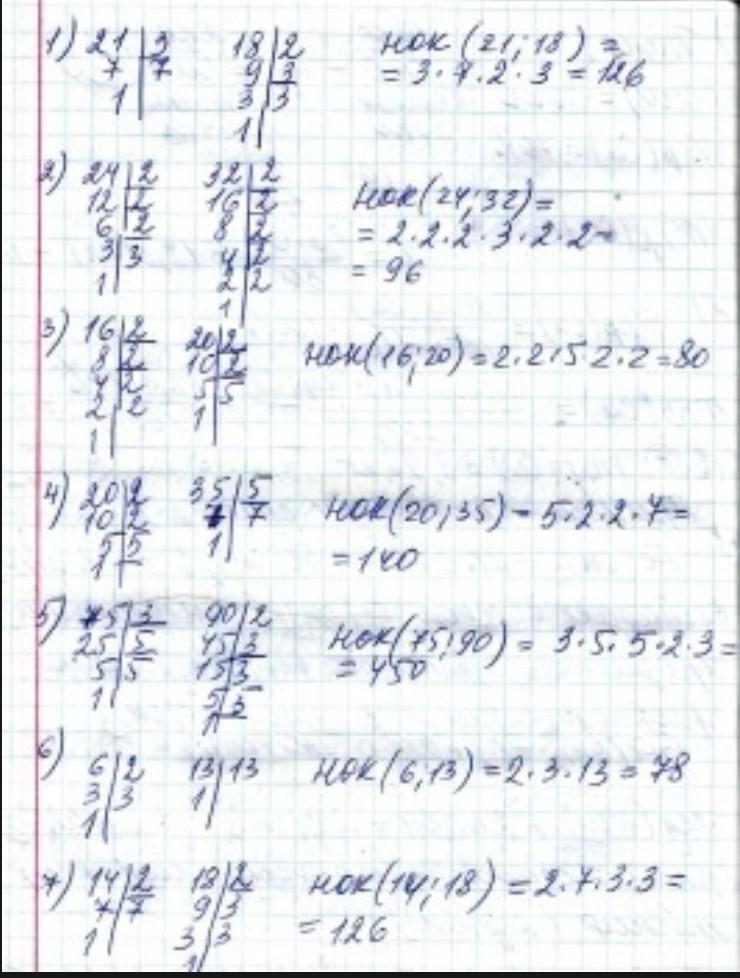 1) 21 | 3 18 | 2 НОК (21; 18) =
7 | 7 9 | 3 = 3 · 7 · 2 · 3 = 126
1 | 3 | 3
1 |
2) 24 | 2 32 | 2 НОК(24; 32) =
12 | 2 16 | 2
6 | 2 8 | 2 = 2 · 2 · 2 · 3 · 2 · 2 =
3 | 3 4 | 2 = 96
1 | 2 | 2
1 |
3) 16 | 2 20 | 2 НОК(16; 20) = 2 · 2 · 5 2 · 2 = 80
8 | 2 10 | 2
4 | 2 5 | 5
2 | 2 1 |
1 |
4) 20 | 2 35 | 5 НОК(20; 35) = 5 · 2 · 2 · 7 =
10 | 2 7 | 7
5 | 5 1 | = 140
1
5) 75 | 3 90 | 2 НОК(75; 90) = 3 · 5 · 5 · 2 · 3 =
25 | 5 45 | 3 = 450
5 | 5 15 | 3
1 | 5 | 5
1
6) 6 | 2 13 | 13 НОК(6; 13) = 2 · 3 · 13 = 78
3 | 3 1 |
1 |
7) 14 | 2 18 | 2 НОК(14; 18) = 2 · 7 · 3 · 3 =
7 | 7 9 | 3 = 126
1 | 3 | 3
1 |